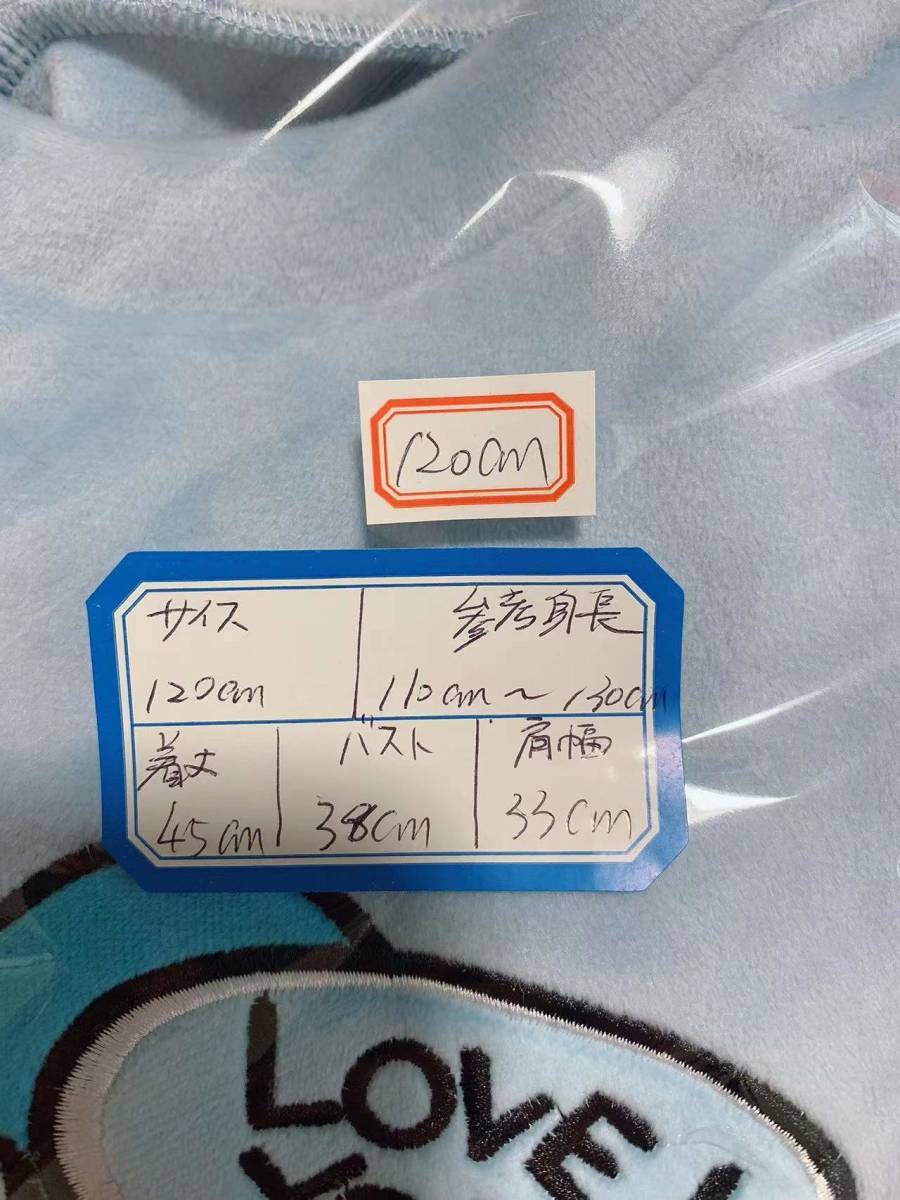 120cm
サイズ 参考身長
120cm 110cm～130cm
着丈 バスト 肩幅
45cm 38cm 33cm
LOVE